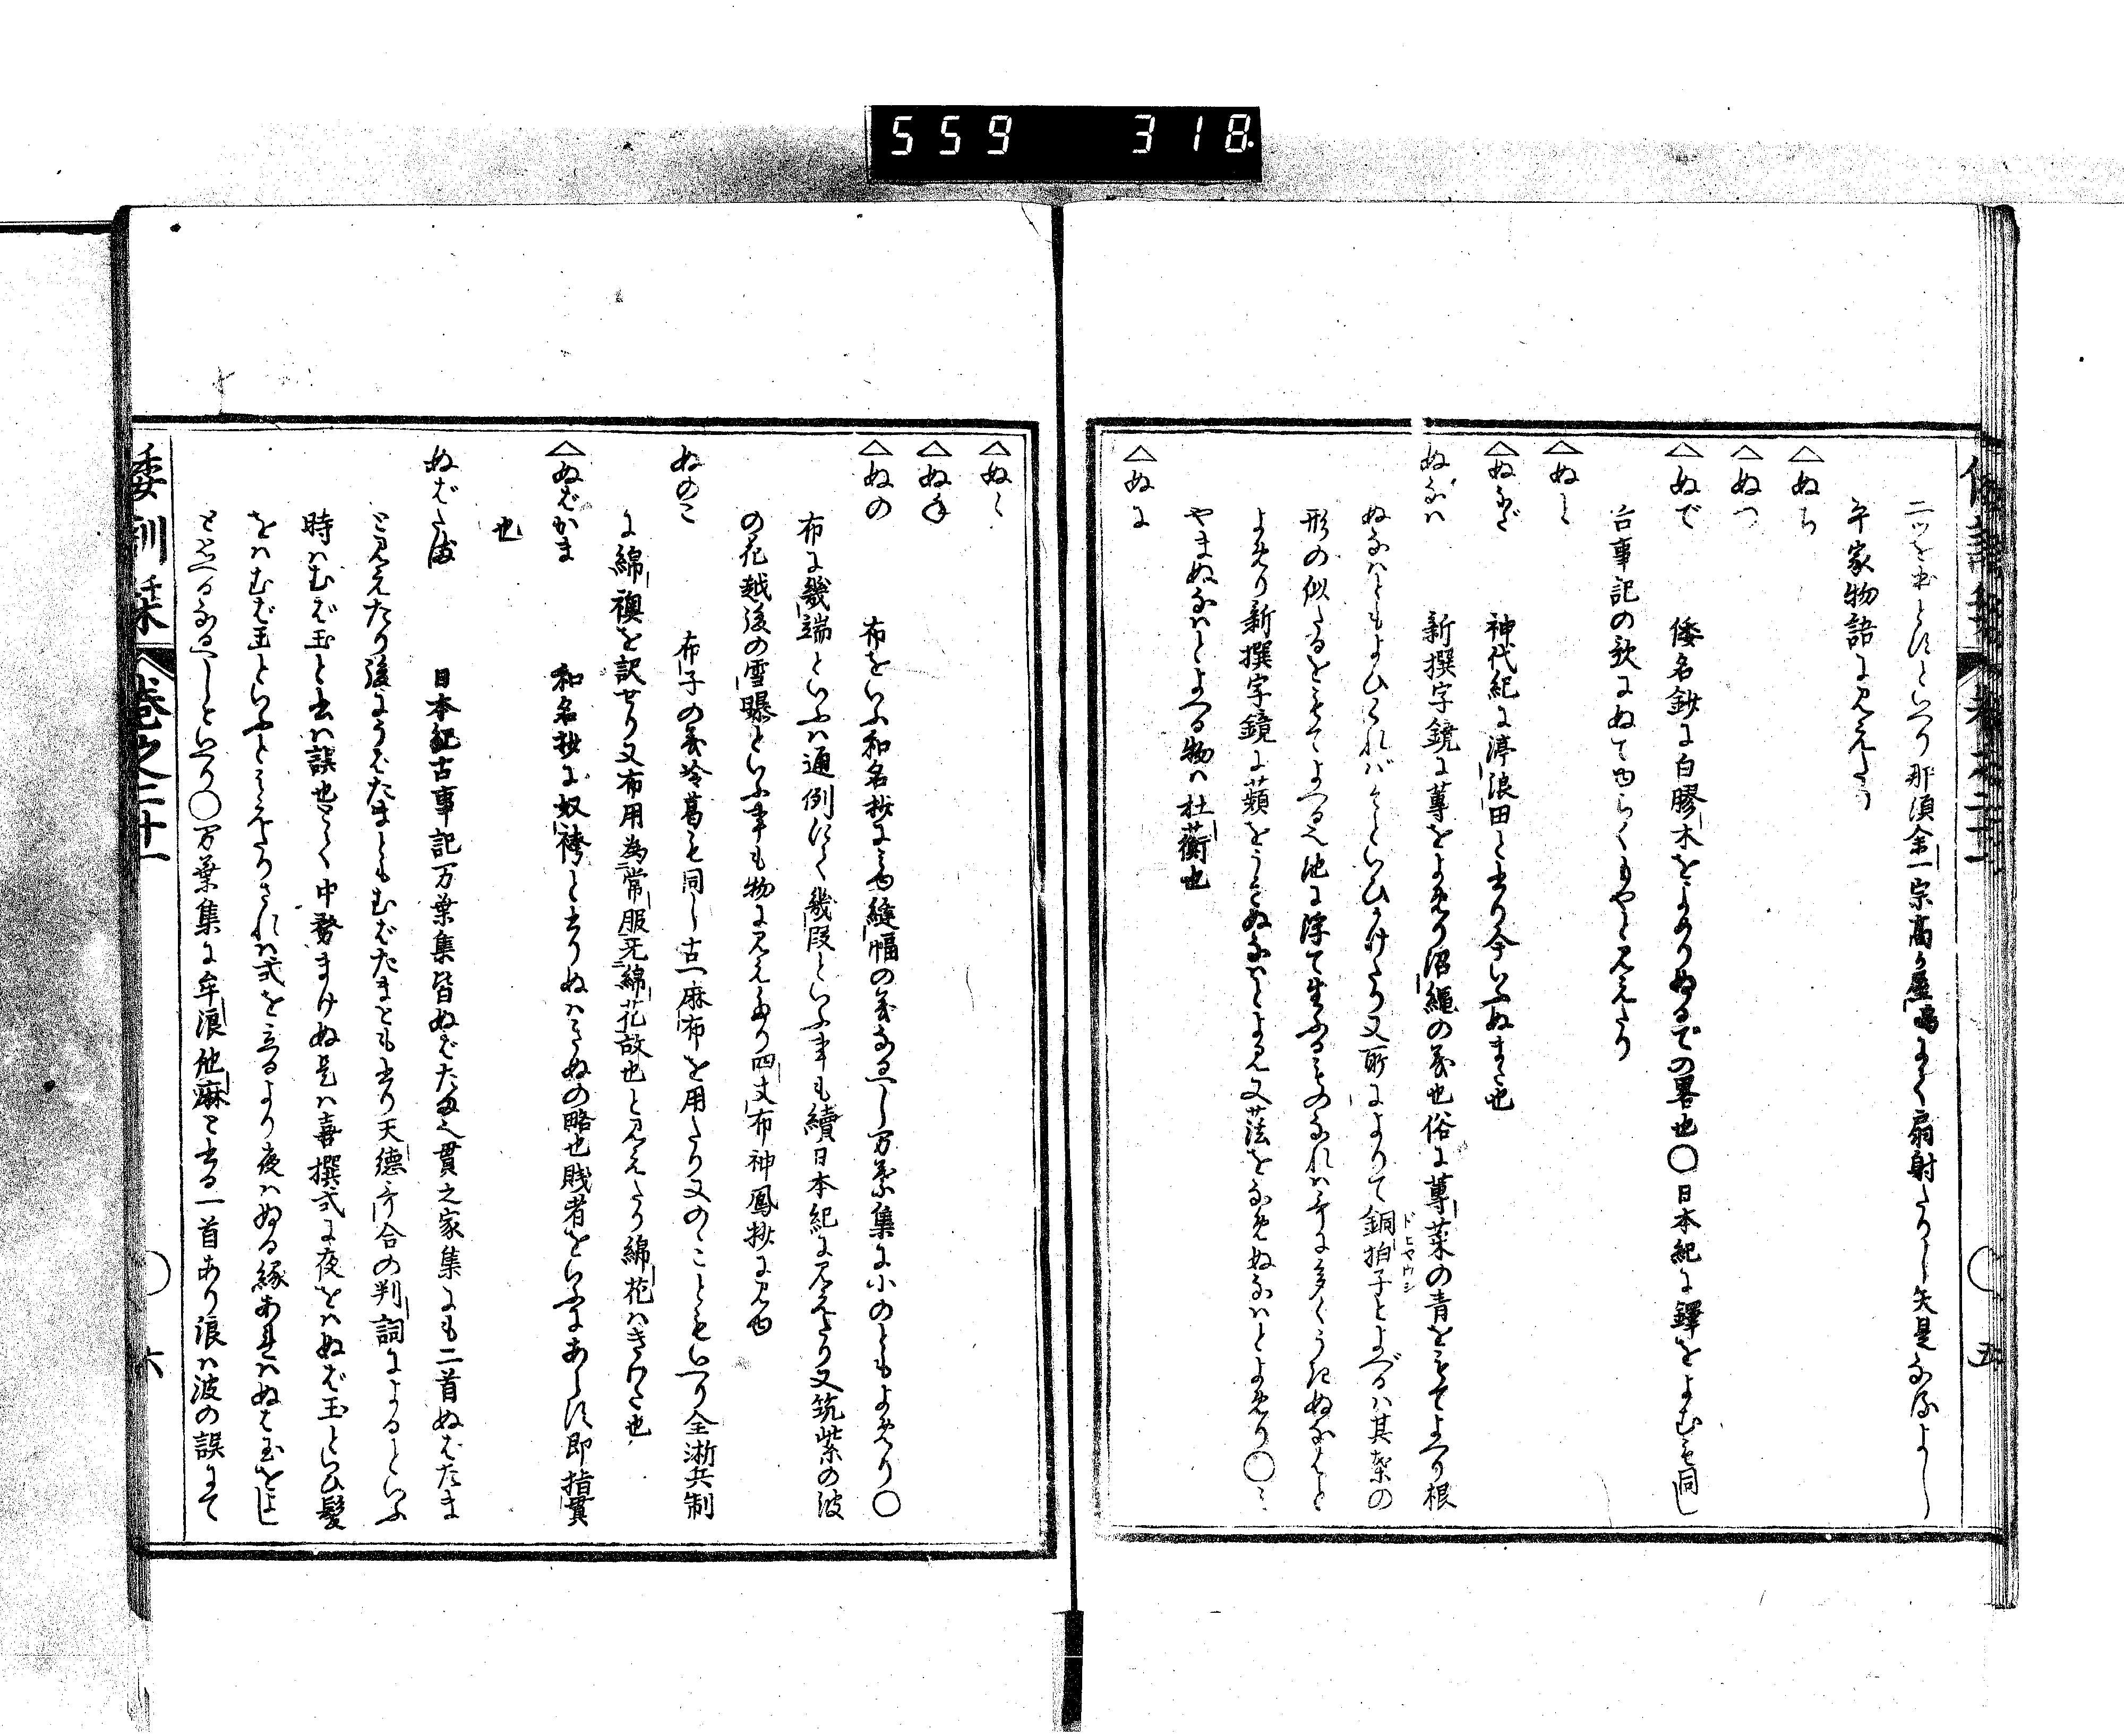 559 318
二ツを出とにといへり那須余一宗高か屋嶋まて扇射たりし矢是なるよし
平家物語に見えたり
△ぬち
△ぬつ
△ぬで 倭名鈔に白膠木をよめりぬるでの畧也〇日本紀に鐸をよむも同し
古事記の歌にぬてゆらくもやと見えたり
△ぬと
△ぬなだ 神代紀に渟浪田と書り今いふぬまた也
ぬなハ 新撰字鏡に蓴をよめり沼縄の義也俗に蓴菜の青をもてよへり根
ぬなハともよひくれバくといひかけたり又所によりて銅拍子とよべるハ其葉の
ドヒヤウシ
形の似たるをもてよへる也池に浮て生ふるものなれハ歌に多くうきぬなはと
よめり新撰字鏡に蘋をうきぬなハとよみ又薃をなめぬなハとよめり〇
やまぬなハとよへる物ハ杜蘅也
△ぬに
△ぬぬ
△ぬね
△ぬの 布をいふ和名抄にみゆ縫幅の義なるへし万葉集に小のともよめり〇
布に幾端といふハ通例にて幾段といふ事も續日本紀に見えたり又筑紫の波
の花越後の雪曝といふ事も物に見えたり四丈布神鳳抄に見ゆ
ぬのこ 布子の義苓葛も同し古一麻布を用たり又のことともいへり全淅兵制
に綿襖を訳せり又布用為常服无綿花故也と見えたり綿花ハきわた也
△ぬばかま 和名抄に奴袴と書りぬハきぬの略也賎者をいふにあらす即指貫
也
ぬばたま 日本紀古事記万葉集皆ぬばたま也貫之家集にも二首ぬばたま
と見えたり後にうばたまともむばたまとも書り天徳歌合の判詞によるといふ
時ハむば玉と書ハ誤也とて中務まけぬ是ハ喜撰式に夜をハぬば玉といひ髪
をハむば玉といふとみえたりされハ式を立るより夜ハぬる縁あれハぬは玉をよし
とさへるなるへしといへり〇万葉集に牟浪他麻と書る一首あり浪ハ波の誤にて
倭訓栞 巻之二十一 六